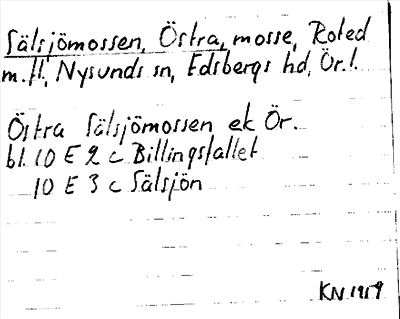 Sälsjömossen, Östra, mosse, Roted
m.fl., Nysunds sn, Edsbergs hd, Ör.l.
Östra Sälsjömossen ek Ör.
bl. 10 E 2 c Billingsfallet
10 E 3 c Sälsjön
KN 1959